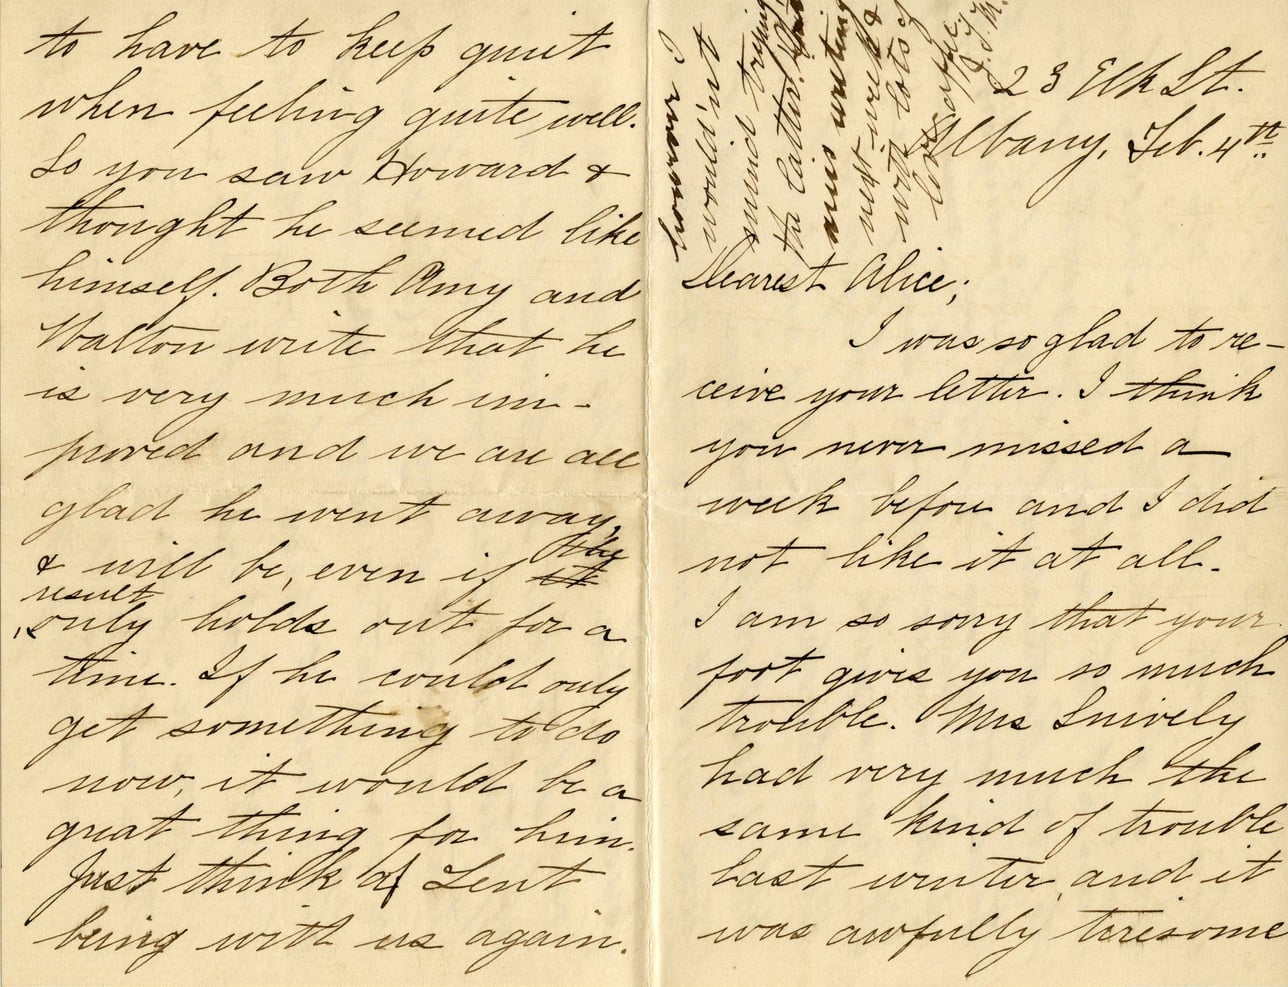 23 Elk St.
Albany, Feb. 4th
Dearest Alice;
I was so glad to re-
ceive your letter. I think
you never missed a
week before and I did
not like it at all.
I am so sorry that your
foot gives you so much
trouble. Mrs Snively
had very much the
same kind of trouble
last winter, and it
was awfully tiresome
to have to keep quiet
when feeling quite well.
So you saw Howard &
thought he seemed like
himself. Both Amy and
Walton write that he
is very much im-
proved and we are all
glad he went away,
& will be, even if it the
result
only holds out for a
time. If he could only
get something to do
now, it would be a
great thing for him.
Just think of Lent
being with us again.
however I
would'nt
mind trying
the latter.
writing
next week &
with lots of
love
J.T.M.